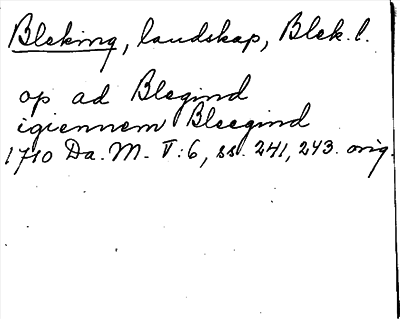 Bleking, landskap, Blek. l.
op ad Blegind
igiennem Bleegind
1710 Da. M. V:6, ss. 241, 243. orig.